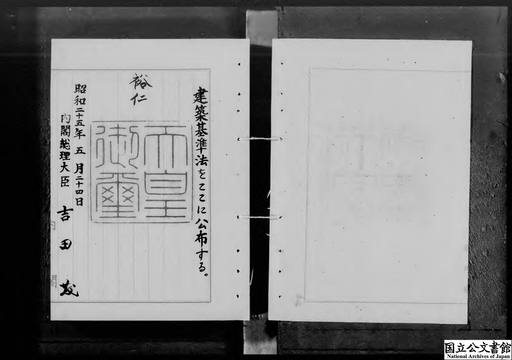 建築基準法をここに公布する。
裕仁
天皇御璽
昭和二十五年五月二十四日
内閣総理大臣 吉田茂
国立公文書館
National Archives of Japan